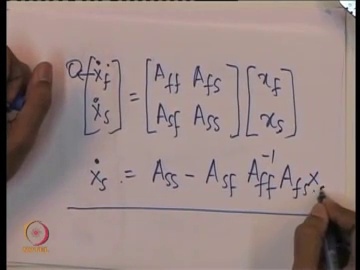 0← [ẋ_f ẋ_s] = [A_ff A_fs A_sf A_ss] [x_f x_s]
ẋ_s = A_ss - A_sf A_ff^-1 A_fs x_s